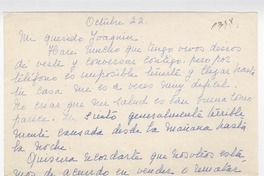 Octubre 22.
Mi querido Joaquín.
Hace mucho que tengo vivos deseos
de verte y conversar contigo, pero por
teléfono es imposible oírte y llegar hasta
tu casa me es a veces muy difícil.
No creas que mi salud es tan buena como
parece. Me siento generalmente terrible
mente cansada desde la mañana hasta
la noche.
Quisiera recordarte que nosotros esta
mos de acuerdo en vender o rematar